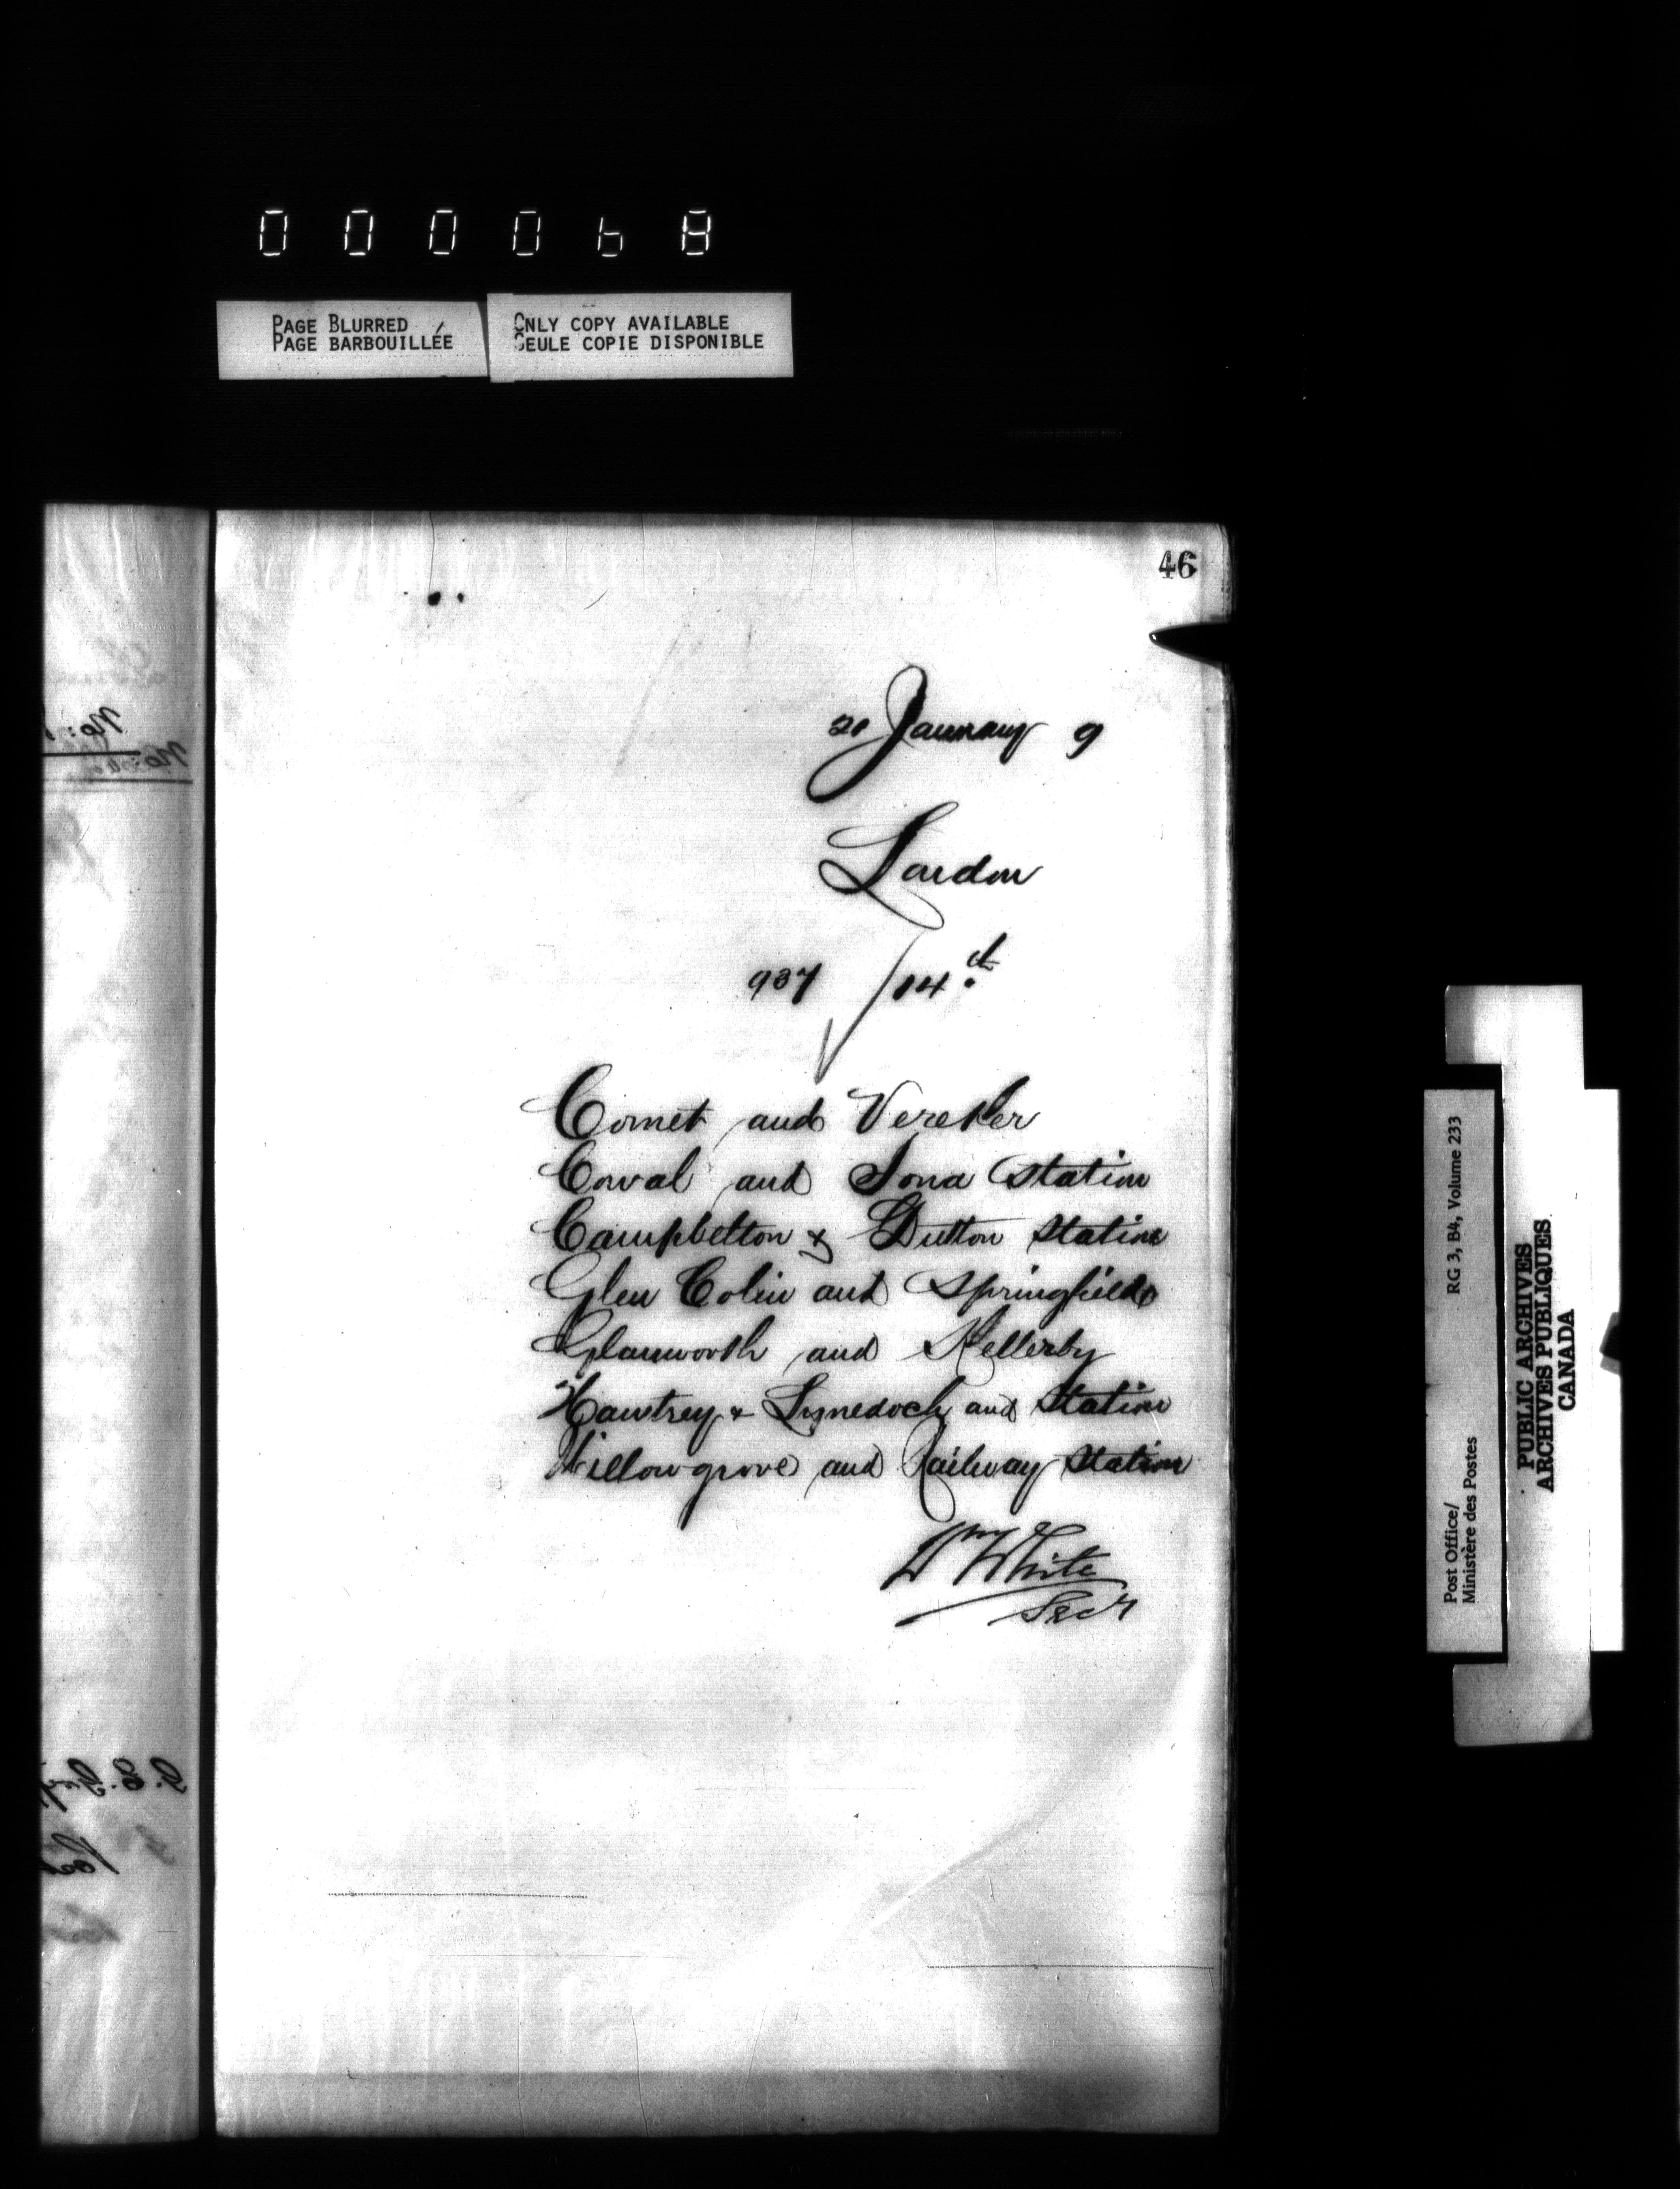 000068
PAGE BLURRED
PAGE BARBOUILLÉE
ONLY COPY AVAILABLE
SEULE COPIE DISPONIBLE
46
January 9
London
937 / 14th
Comet and Vereker
Cowal and Iona Station
Campbelton & Dutton Station
Glen Colin and Springfield
Glanworth and Kellerby
Hawtrey & Lynedoch and Station
Willowgrove and Railway Station
Wm White
Secy
Post Office/ RG 3, B4, Volume 233
Ministère des Postes
PUBLIC ARCHIVES
ARCHIVES PUBLIQUES
CANADA